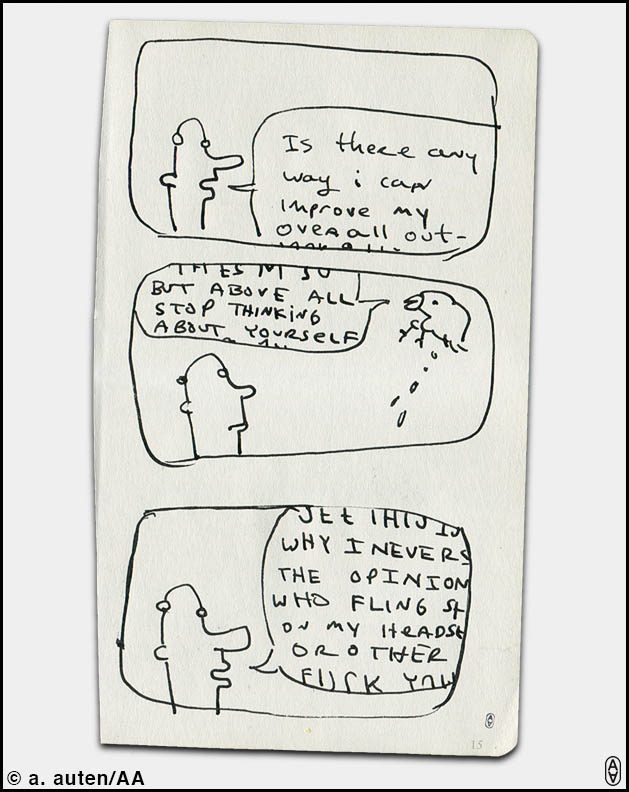 Is there any
way i can
improve my
overall out-
BUT ABOVE ALL
STOP THINKING
ABOUT YOURSELF
SEE THIS IS
WHY I NEVER S
THE OPINION
WHO FLING SH
ON MY HEAD SH
OR OTHER
FUCK YOU
15
© a. auten/AA